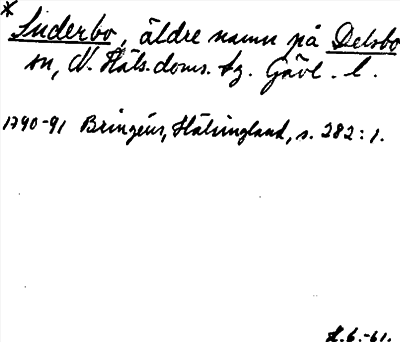 * Suderbo, äldre namn på Delsbo
sn, N. Häls. doms. tg. Gävl. l.
1790-91 Bringéus, Hälsingland, s. 282: 1.
H.6.-61.